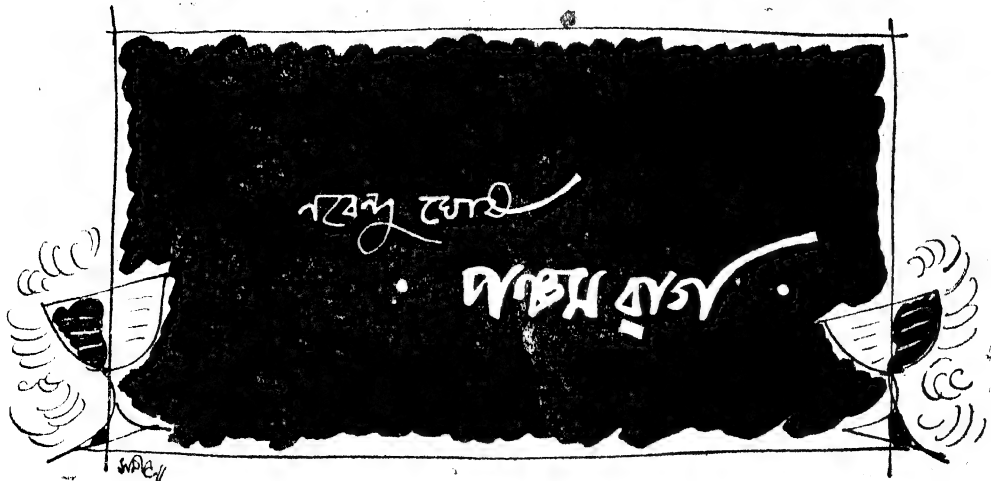 নবেন্দু ঘোষ
পঞ্চম রাগ